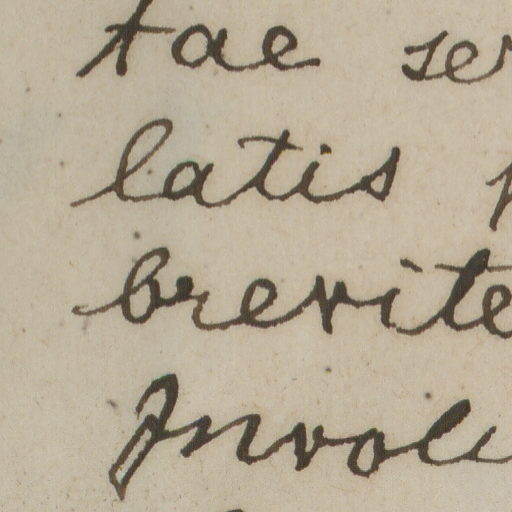 tae ser
latis p
brevite
Involu